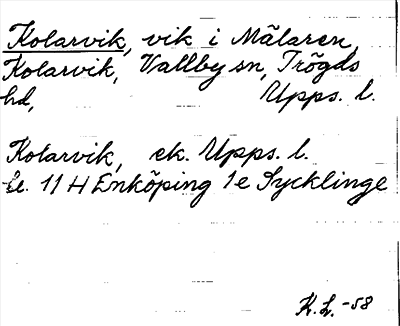 Kolarvik, vik i Mälaren,
Kolarvik, Vallby sn, Trögds
hd, Upps. l.
Kolarvik, ek. Upps. l.
bl. 11 H Enköping 1e Sycklinge
K.L. -58